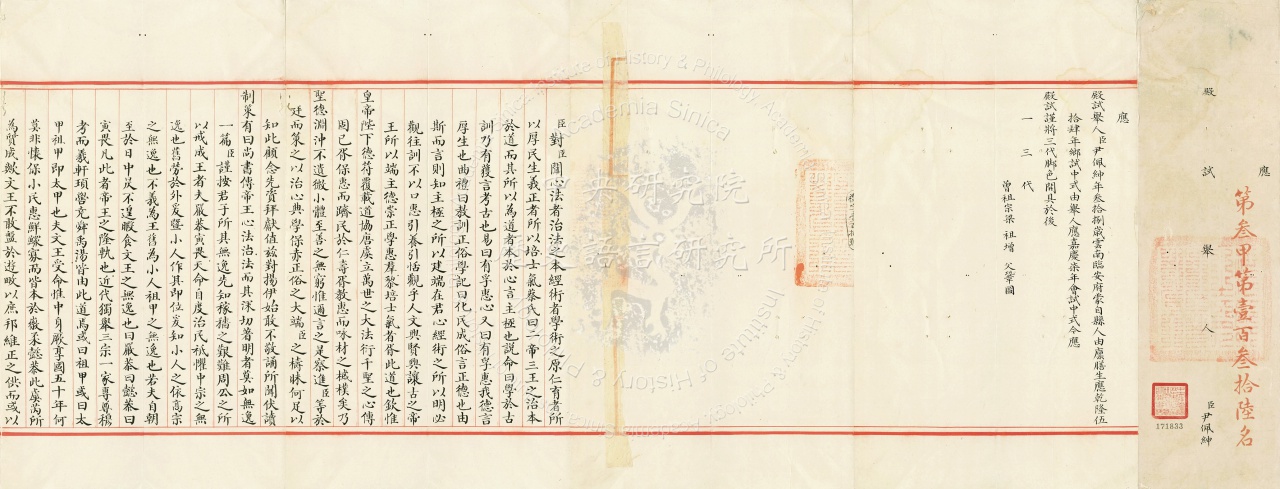 應
殿試舉人
臣尹佩紳
第叁甲第壹百叁拾陸名
171833
應
殿試舉人臣尹佩紳年叁拾捌歲雲南臨安府蒙自縣人由廩膳生應乾隆伍
拾肆年鄉試中式由舉人應嘉慶柒年會試中式今應
殿試謹將三代脚色開具於後
一三代
曾祖宗梁 祖增 父肇
臣對臣聞心法者治法之本經術者學術之原仁育者所
以厚民生義正者所以培士氣蔡氏曰二帝三王之治本
於道而其所以為道者本於心言主極也說命曰學於古
訓乃有獲言考古也易曰有孚惠心又曰有孚惠我德言
厚生也曲禮曰教訓正俗學記曰化民成俗言正德也由
斯而言則知主極之所以建端在君心經術之所以明必
觀往訓不以口惠引養引恬觀乎人文興賢興讓古之帝
王所以端主德崇正學惠羣黎培士氣者胥此道也欽惟
皇帝陛下德符覆載道協唐虞立萬世之大法衍千聖之心傳
固已胥保惠而躋民於仁壽胥教惠而咏材之棫樸矣乃
聖德淵沖不遺微小體至善之無窮惟邇言之是察進臣等於
廷而策之以治心典學保赤正俗之大端臣之檮昧何足以
知此顧念先資拜獻值茲對揚伊始敢不敬誦所聞伏讀
制策有曰尚書傳帝王心法治法而其深切著明者莫如無逸
一篇臣謹按君子所其無逸先知稼穡之艱難周公之所
以戒成王者夫嚴恭寅畏天命自度治民祗懼中宗之無
逸也舊勞於外爰暨小人作其即位爰知小人之依高宗
之無逸也不義為王舊為小人祖甲之無逸也若夫自朝
至於日中昃不遑暇食文王之無逸也曰嚴恭曰懿恭曰
寅畏凡此者帝王之隆軌也近代獨舉三宗一家專尊穆
考而羲軒頊嚳堯舜禹湯皆由此道焉或曰祖甲或曰太
甲祖甲即太甲也夫文王受命惟中身厥享國五十年何
莫非懷保小民惠鮮鰥寡而皆本於徽柔懿恭此虞芮所
為質成歟文王不敢盤於遊畋以庶邦維正之供而或以